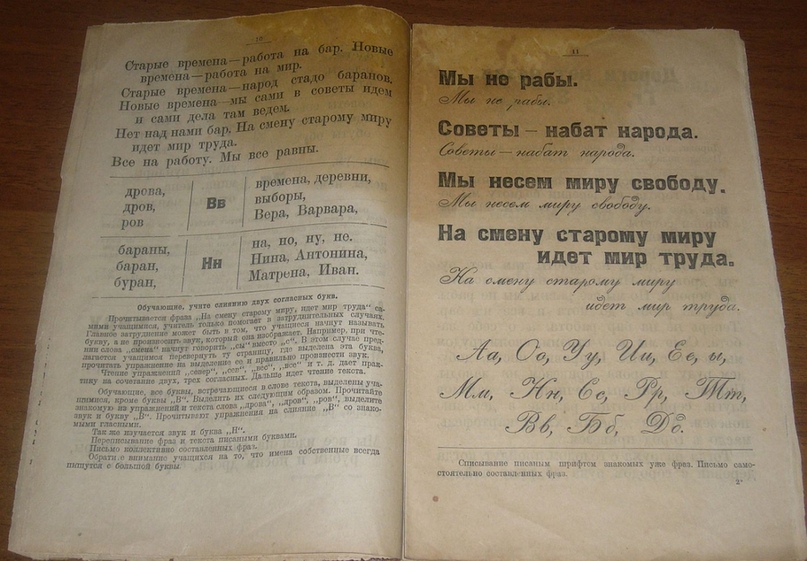 10
Старые времена—работа на бар. Новые
времена—работа на мир.
Старые времена—народ стадо баранов.
Новые времена—мы сами в советы идем
и сами дела там ведем.
Нет над нами бар. На смену старому миру
идет мир труда.
Все на работу. Мы все равны.
дрова,
дров,
ров
Вв
времена, деревни,
выборы,
Вера, Варвара,
бараны,
баран,
буран,
Нн
на, но, ну, не.
Нина, Антонина,
Матрена, Иван.
Обучающие, учите слиянию двух согласных букв.
Прочитывается фраза „На смену старому миру, идет мир труда“ са-
мими учащимися, учитель только помогает в затруднительных случаях.
Главное затруднение может быть в том, что учащиеся начнут называть
букву, а не произносить звук, который она изображает. Например, при чте-
нии слова „смена“ начнут говорить „сы“ вместо „с“. В этом случае пред-
лагается учащимся перевернуть ту страницу, где выделена эта буква,
прочитать упражнение на выделение ее и правильно произнести звук.
Чтение упражнений „север“, „сев“, „вес“, „все“ и т. д. дает прак-
тику на сочетание двух, трех согласных. Дальше идет чтение текста.
Обучающие, все буквы, встречающиеся в слове текста, выделены уча-
щимися, кроме буквы „В“. Выделить их следующим образом. Прочитайте
знакомую из упражнений и текста слова „дрова“, „дров“, „ров“, выделите
звук и букву „В“. Прочитывают упражнения на слияние „В“ со знако-
мыми гласными.
Так же изучается звук и буква „Н“.
Переписывание фраз и текста писаными буквами.
Письмо коллективно составленных фраз.
Обрати е внимание учащихся на то, что имена собственные всегда
пишутся с большой буквы
11
Мы не рабы.
Мы не рабы.
Советы — набат народа.
Советы — набат народа.
Мы несем миру свободу.
Мы несем миру свободу.
На смену старому миру
идет мир труда.
На смену старому миру
идет мир труда.
Аа, Оо, Уу, Ии, Ее, ы,
Мм, Нн, Сс, Рр, Тт,
Вв, Бб, Дд.
Списывание писаным шрифтом знакомых уже фраз. Письмо само-
стоятельно составленных фраз.
2*